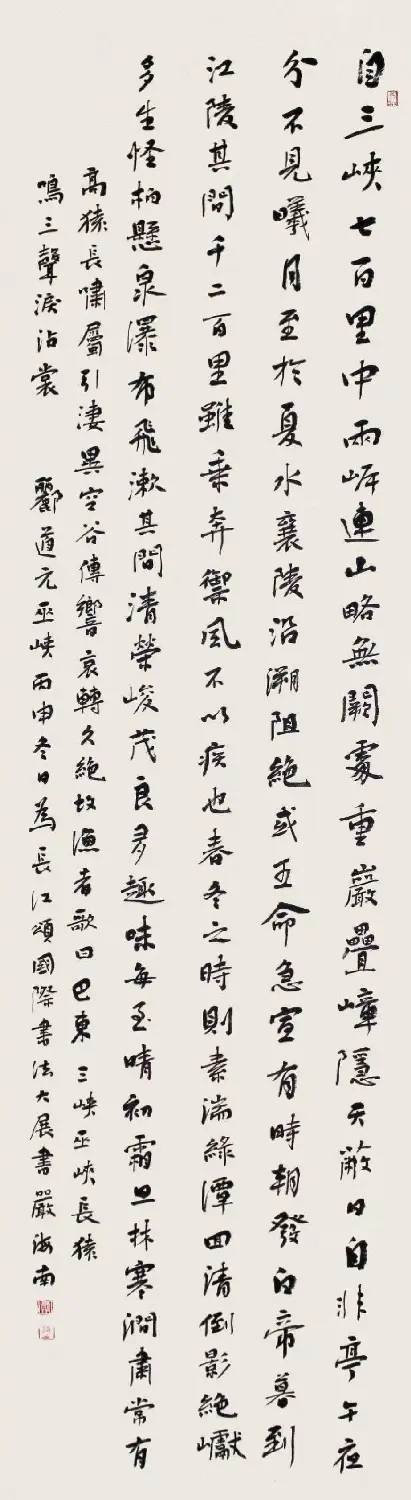 自三峽七百里中兩岸連山略無闕處重巖疊嶂隱天蔽日自非亭午夜
分不見曦月至於夏水襄陵沿溯阻絕或王命急宣有時朝發白帝暮到
江陵其間千二百里雖乘奔禦風不以疾也春冬之時則素湍綠潭回清倒影絕巘
多生怪柏懸泉瀑布飛漱其間清榮峻茂良多趣味每至晴初霜旦林寒澗肅常有
高猿長嘯屬引淒異空谷傳響哀轉久絕故漁者歌曰巴東三峽巫峽長猿
鳴三聲淚沾裳 酈道元巫峽丙申冬日為長江頌國際書法大展書嚴海南